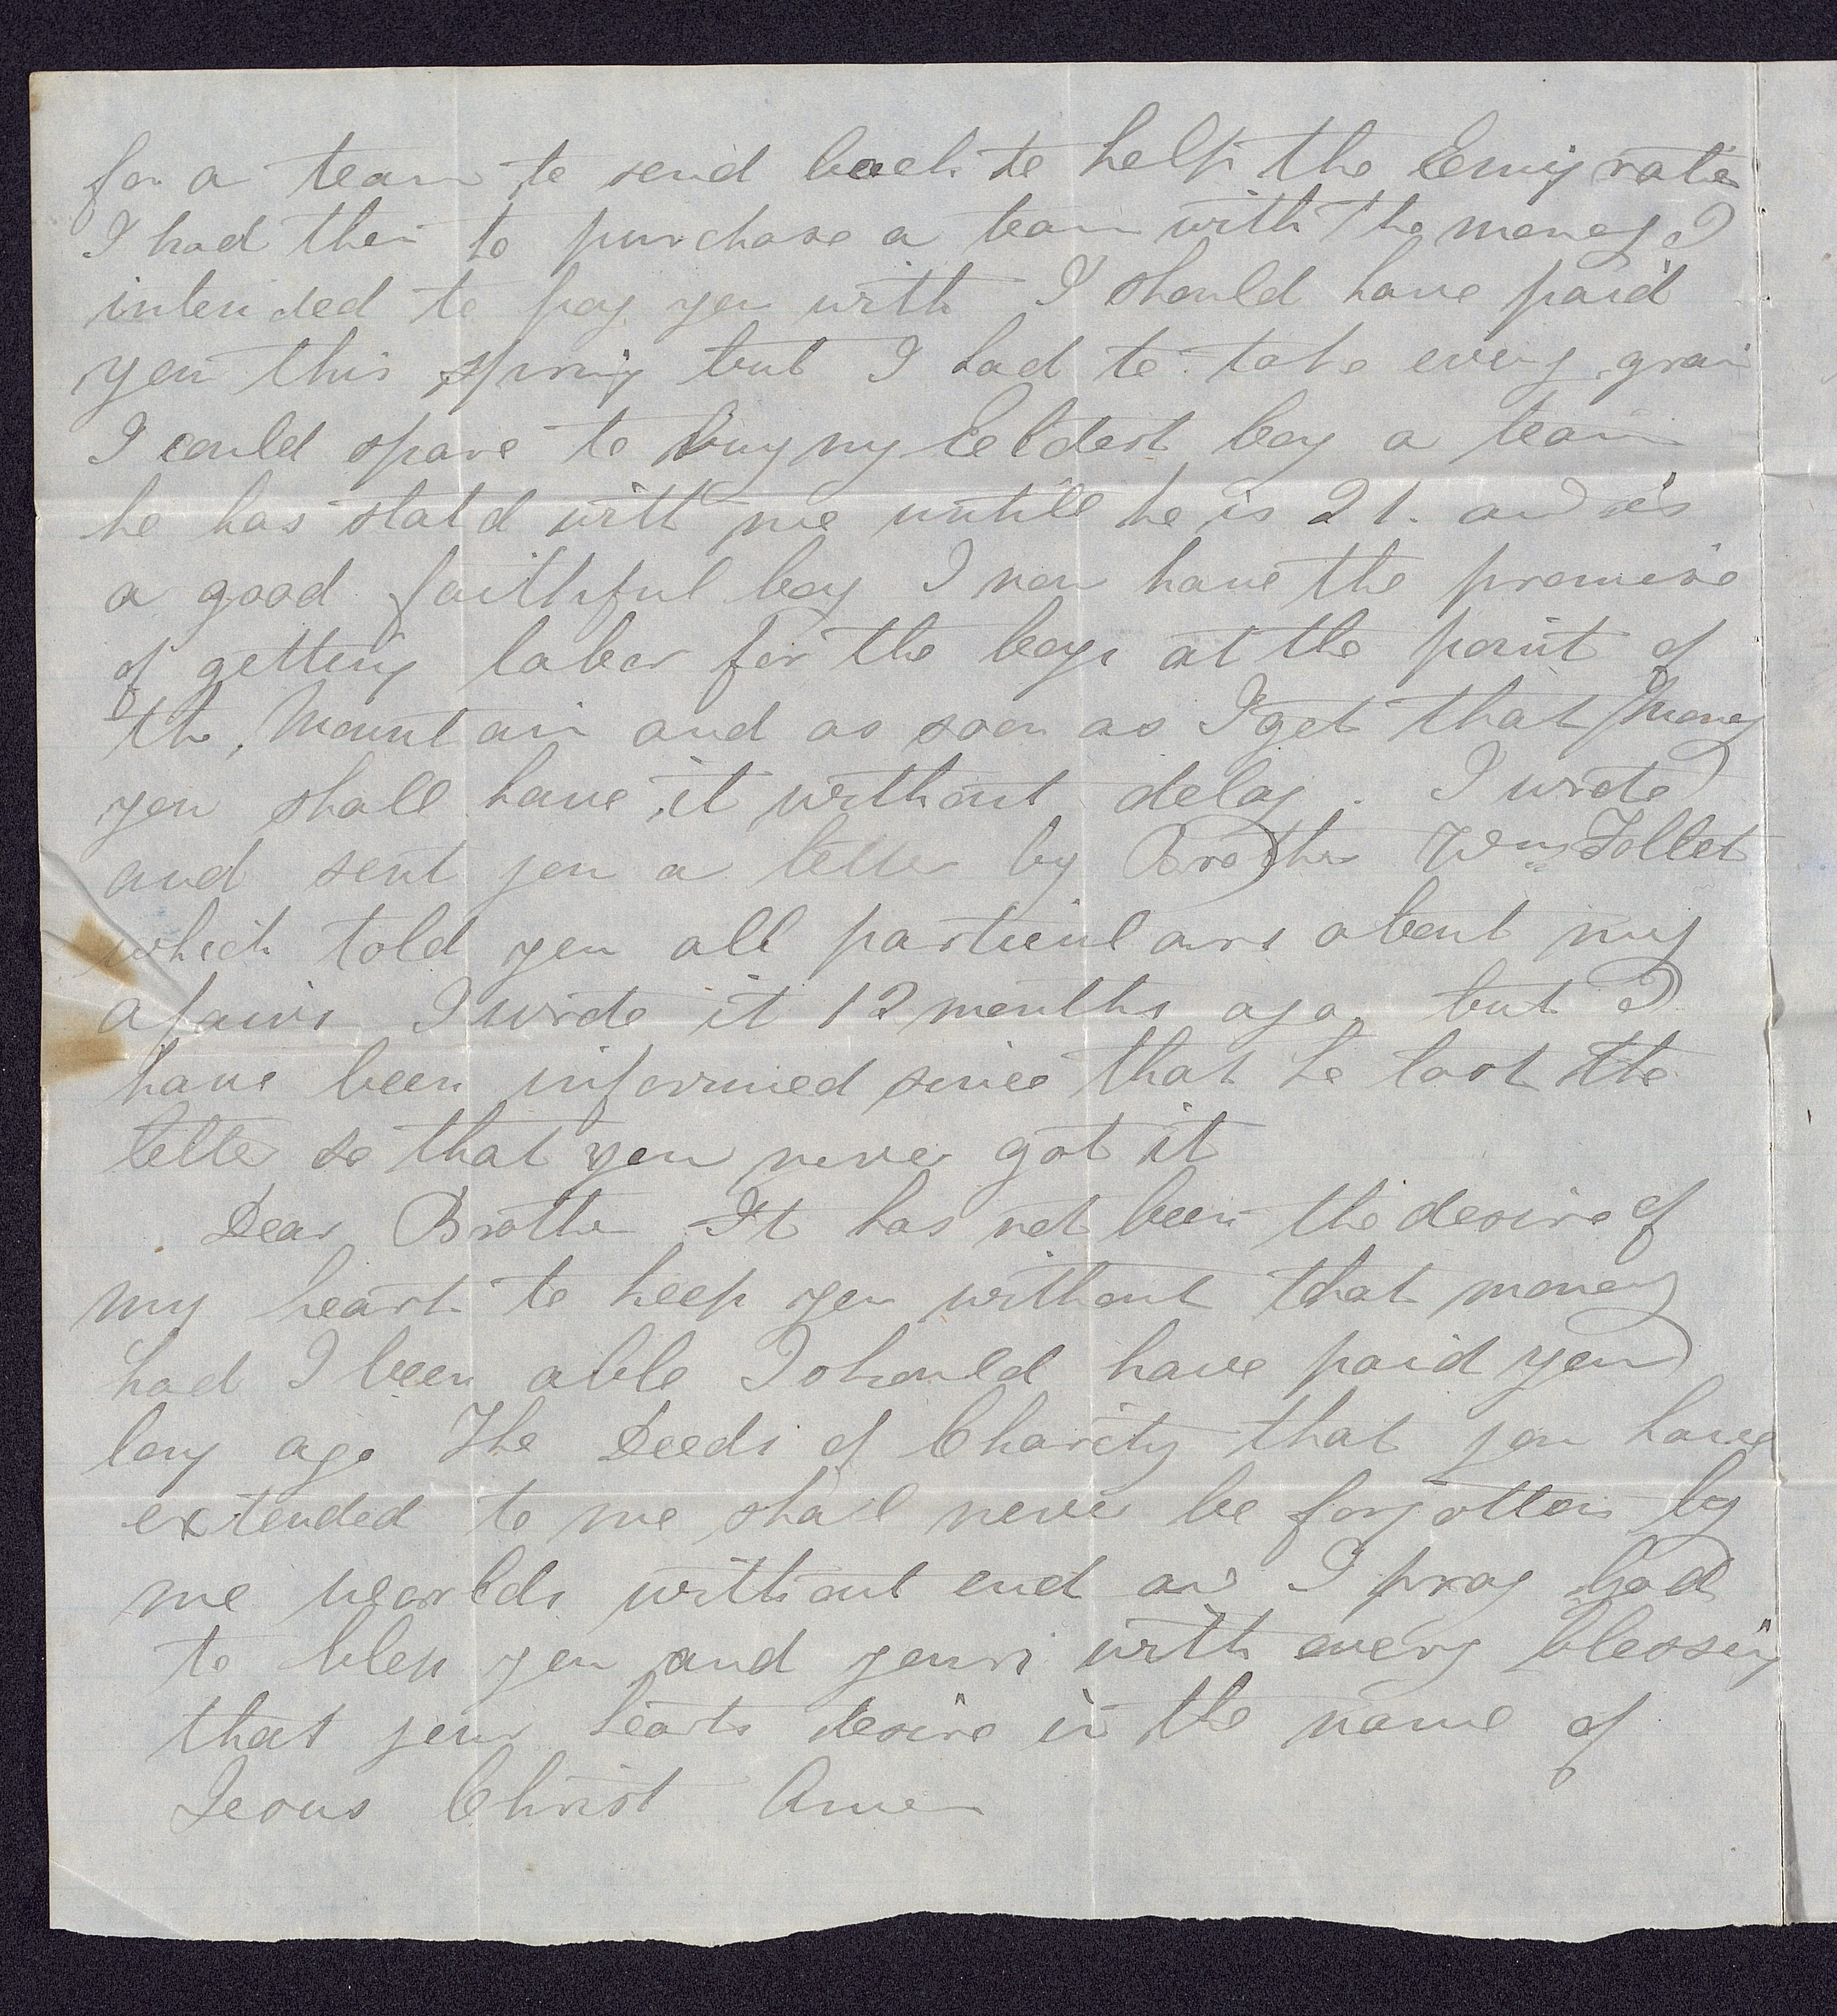 for a team to send back to help the Emigratio
I had then to purchase a team with the money I
intended to pay you with I should have paid
you this spring but I had to take every grain
I could spare to buy my Eeldest boy a team
he has staid with me untill he is 21. and is
a good faithful boy I now have the promise
of getting labor for the boys at the point of
the Mountain and as soon as I get that Money
you shall have it without delay. I wrote
and sent you a letter by Brother Wm Follet
which told you all particulars about my
afairs I wrote it 12 months ago but I
have been informed since that he lost the
letter so that you never got it
Dear Brother It has not been the desire of
my heart to keep you without that money
had I been able I should have paid you
long ago The Deeds of Charity that you have
extended to me shall never be forgotten by
me worlds without end and I pray God
to bless you and yours with every blessing
that your hearts desire in the name of
Jesus Christ Amen